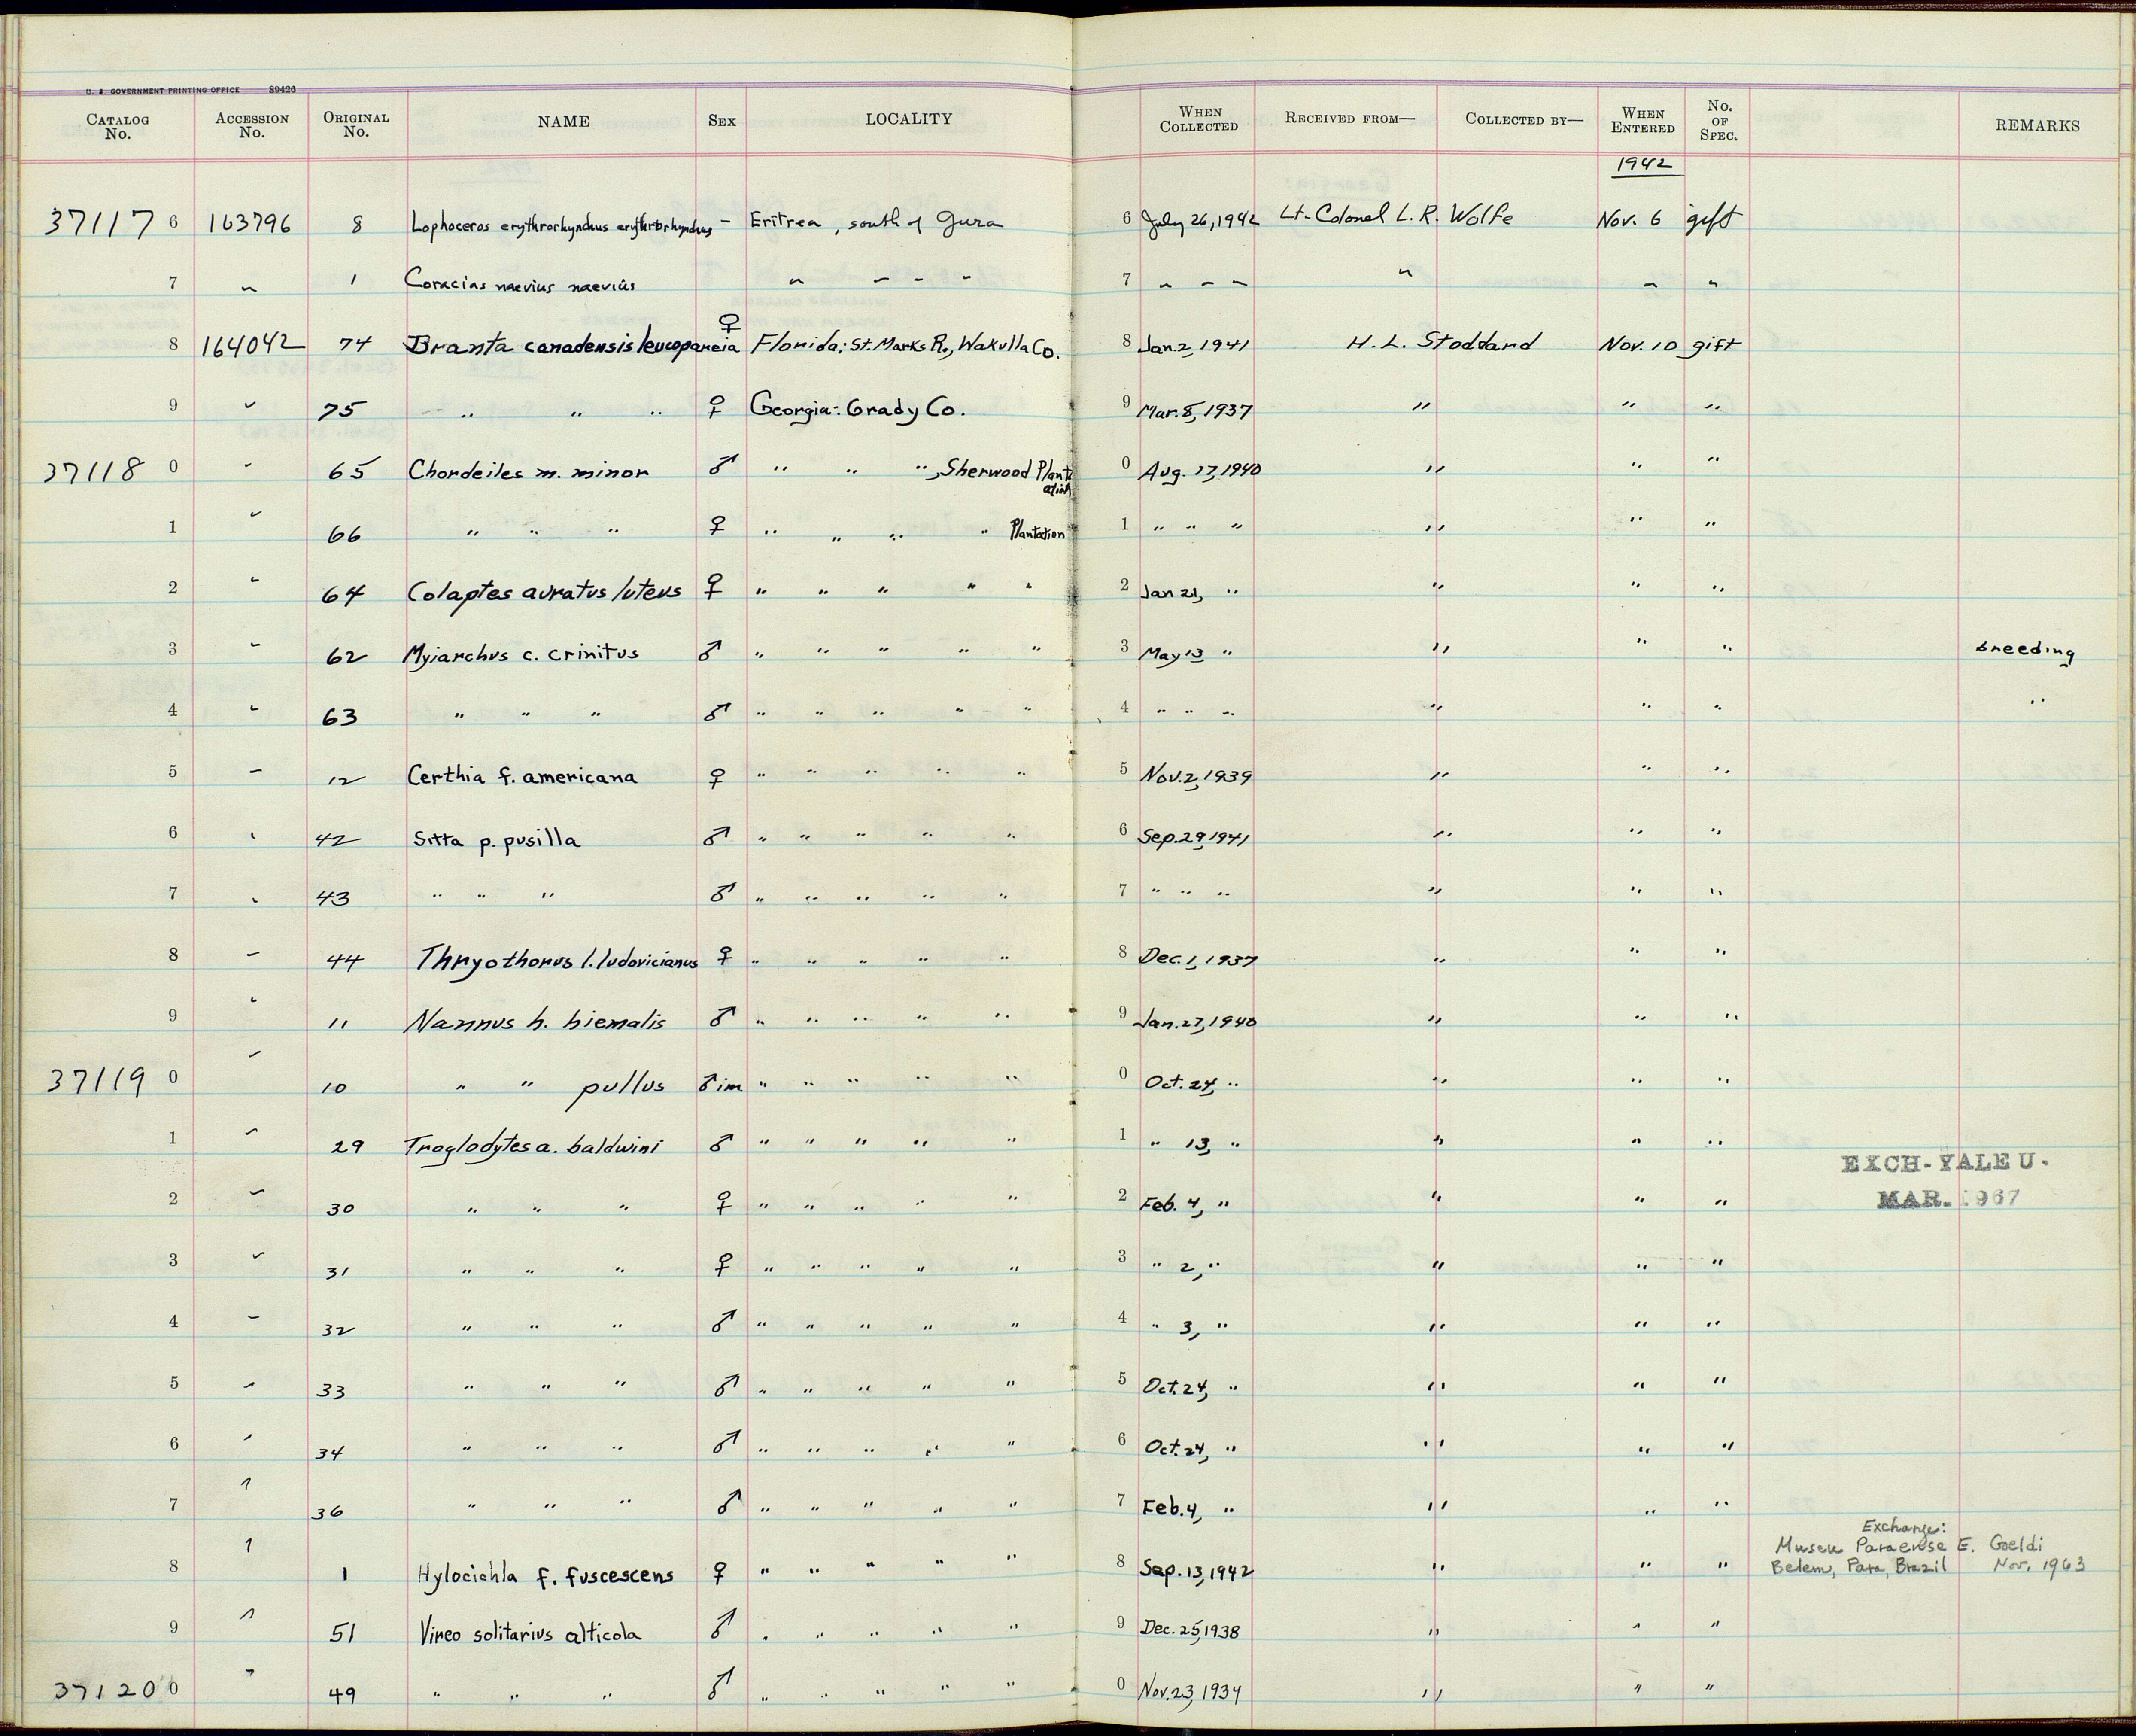 U. S. GOVERNMENT PRINTING OFFICE 89426
CATALOG No. ACCESSION No. ORIGINAL No. NAME SEX LOCALITY WHEN COLLECTED RECEIVED FROM— COLLECTED BY— WHEN ENTERED No. OF SPEC. REMARKS
1942
37117 6 163796 8 Lophoceros erythrorhynchus erythrorhynchus - Eritrea, south of Gura 6 July 26, 1942 Lt-Colonel L. R. Wolfe Nov. 6 gift
7 " 1 Coracias naevius naevius " - - - 7 " - - " " "
8 164042 74 Branta canadensis leucopareia ♀ Florida: St. Marks R., Wakulla Co. 8 Jan. 2, 1941 H. L. Stoddard Nov. 10 gift
9 " 75 " " " ♀ Georgia: Grady Co. 9 Mar. 8, 1937 " " "
37118 0 " 65 Chordeiles m. minor ♂ " " ", Sherwood Plantation 0 Aug. 17, 1940 " " "
1 " 66 " " " ♀ " " " " Plantation 1 " " " " " "
2 " 64 Colaptes auratus luteus ♀ " " " " " 2 Jan 21, " " " "
3 " 62 Myiarchus c. crinitus ♂ " " " " " 3 May 13 " " " " breeding
4 " 63 " " " ♂ " " " " " 4 " " " " " " "
5 " 12 Certhia f. americana ♀ " " " " " 5 Nov. 2, 1939 " " "
6 " 42 Sitta p. pusilla ♂ " " " " " 6 Sep. 29, 1941 " " "
7 " 43 " " " ♂ " " " " " 7 " " " " " "
8 " 44 Thryothorus l. ludovicianus ♀ " " " " " 8 Dec. 1, 1937 " " "
9 " 11 Nannus h. hiemalis ♂ " " " " " 9 Jan. 27, 1940 " " "
37119 0 " 10 " " pullus ♂ im " " " " " 0 Oct. 24, " " " "
1 " 29 Troglodytes a. baldwini ♂ " " " " " 1 " 13, " " " "
EXCH-YALE U.
2 " 30 " " " ♀ " " " " " 2 Feb. 4, " " " " MAR. 1967
3 " 31 " " " ♀ " " " " " 3 " 2, " " " "
4 " 32 " " " ♂ " " " " " 4 " 3, " " " "
5 " 33 " " " ♂ " " " " " 5 Oct. 24, " " " "
6 " 34 " " " ♂ " " " " " 6 Oct. 24, " " " "
7 " 36 " " " ♂ " " " " " 7 Feb. 4, " " " "
Exchange:
Museu Paraense E. Goeldi
8 " 1 Hylocichla f. fuscescens ♀ " " " " " 8 Sep. 13, 1942 " " " Belem, Para, Brazil Nov. 1963
9 " 51 Vireo solitarius alticola ♂ " " " " " 9 Dec. 25, 1938 " " "
37120 0 " 49 " " " ♂ " " " " " 0 Nov. 23, 1934 " " "